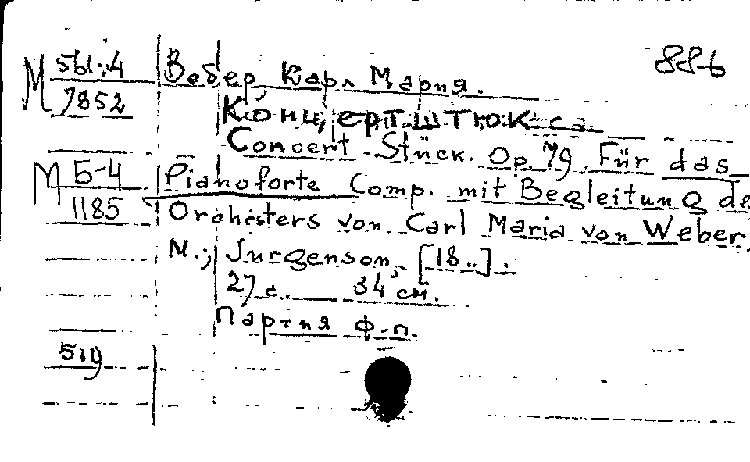 886
М 5ы.4 Вебер, Карл Мария.
7852 Концертштюк
Concert-Stück. Op 79. Für das
М Б-4 Pianoforte Comp. mit Begleitung de
1185 Orchesters von Carl Maria von Weber.
М.; Jurgenson, [18..].
27 с. 34 см.
Партия ф-п.
519